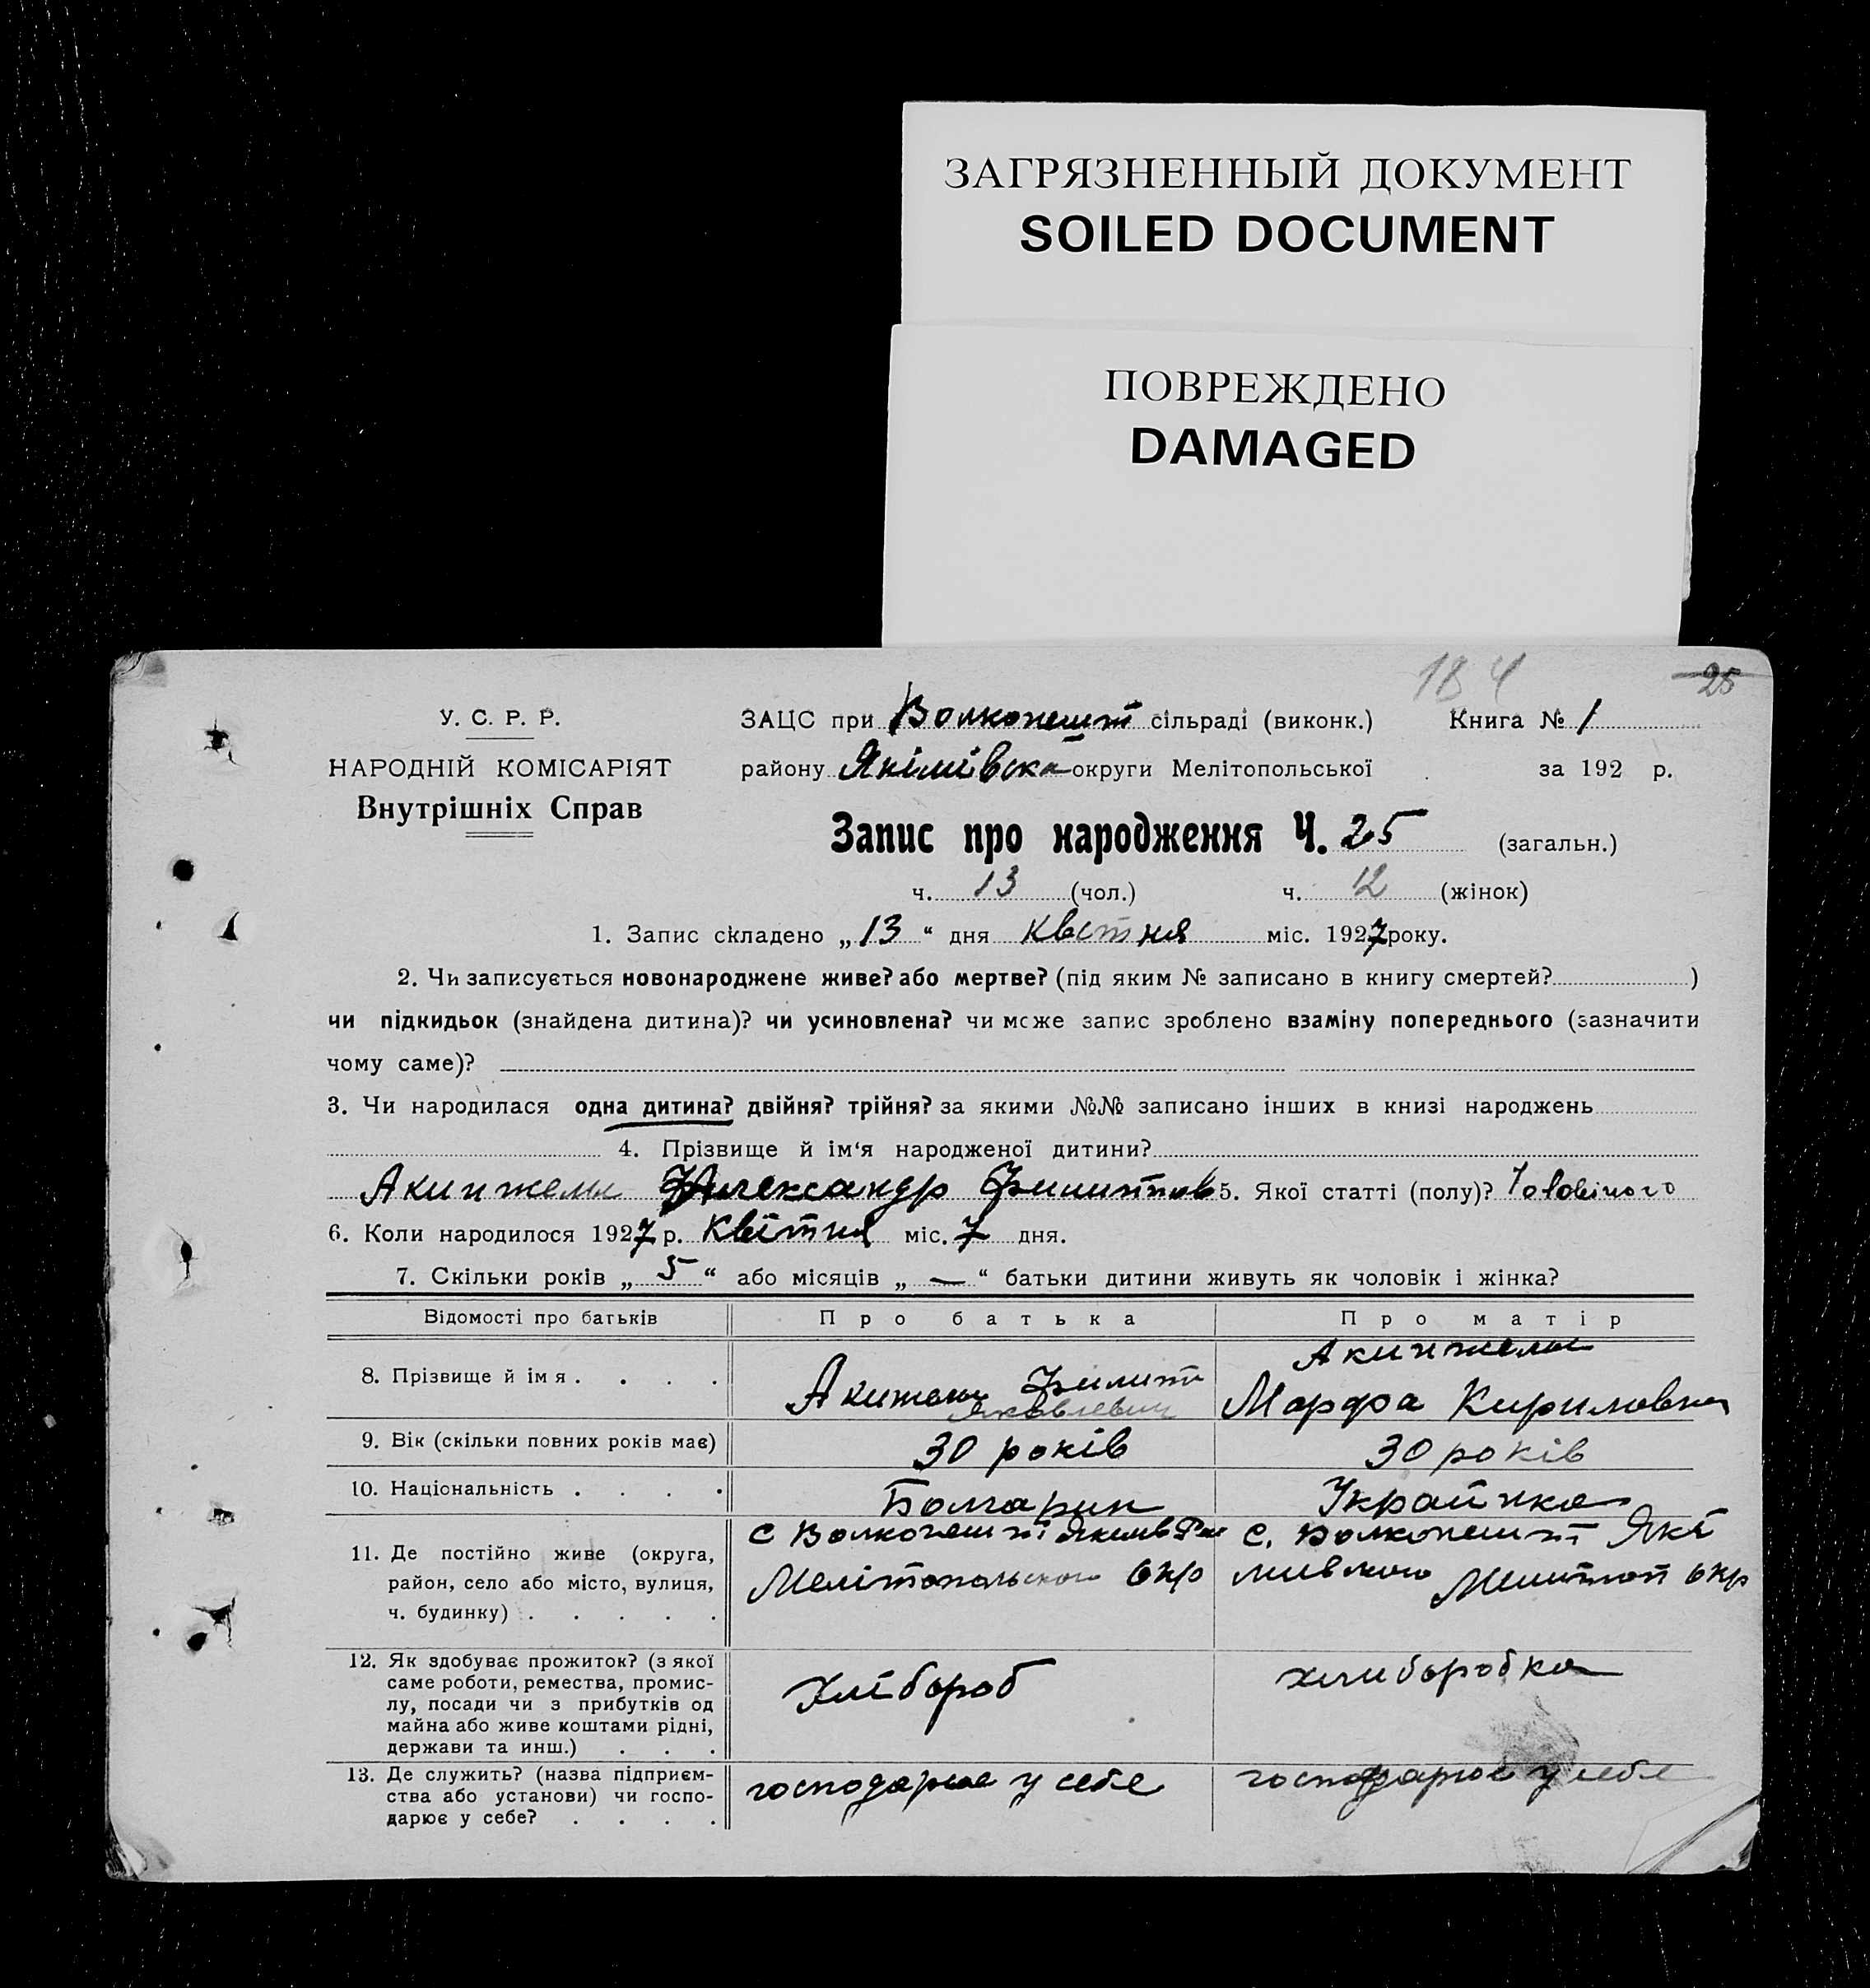 ЗАГРЯЗНЕННЫЙ ДОКУМЕНТ
SOILED DOCUMENT
ПОВРЕЖДЕНО
DAMAGED
184
25
У. С. Р. Р.
НАРОДНІЙ КОМІСАРІЯТ
Внутрішніх Справ
ЗАЦС при Волконешт сільраді (виконк.) Книга № 1
району Якімівска округи Мелітопольської за 192 р.
Запис про народження Ч. 25 (загальн.)
ч. 13 (чол.) ч. 12 (жінок)
1. Запис складено „13“ дня Квітня міс. 1927 року.
2. Чи записується новонароджене живе? або мертве? (під яким № записано в книгу смертей? )
чи підкидьок (знайдена дитина)? чи усиновлена? чи може запис зроблено взаміну попереднього (зазначити
чому саме)?
3. Чи народилася одна дитина? двійня? трійня? за якими №№ записано інших в книзі народжень
4. Прізвище й ім‘я народженої дитини?
Александр 5. Якої статті (полу)? Чоловічого
6. Коли народилося 1927 р. Квітня міс. 7 дня.
7. Скільки років „5“ або місяців „—“ батьки дитини живуть як чоловік і жінка?
Відомості про батьків Про батька Про матір
8. Прізвище й імя . . . .
Филип
Яковлевич
Марфа Кириловна
9. Вік (скільки повних років має) 30 років 30 років
10. Національність . . . . Болгарин Украйнка
11. Де постійно живе (округа,
район, село або місто, вулиця,
ч. будинку) . . . . .
с Волконешті Якимв
Мелітопольского Окр
с. Волконешт Які
мивского Мелитоп окр
12. Як здобуває прожиток? (з якої
саме роботи, ремества, промис-
лу, посади чи з прибутків од
майна або живе коштами рідні,
держави та инш.) . . .
Хлібороб хлиборобка
13. Де служить? (назва підприєм-
ства або установи) чи госпо-
дарює у себе? . . . .
господарює у себе господарює у себе